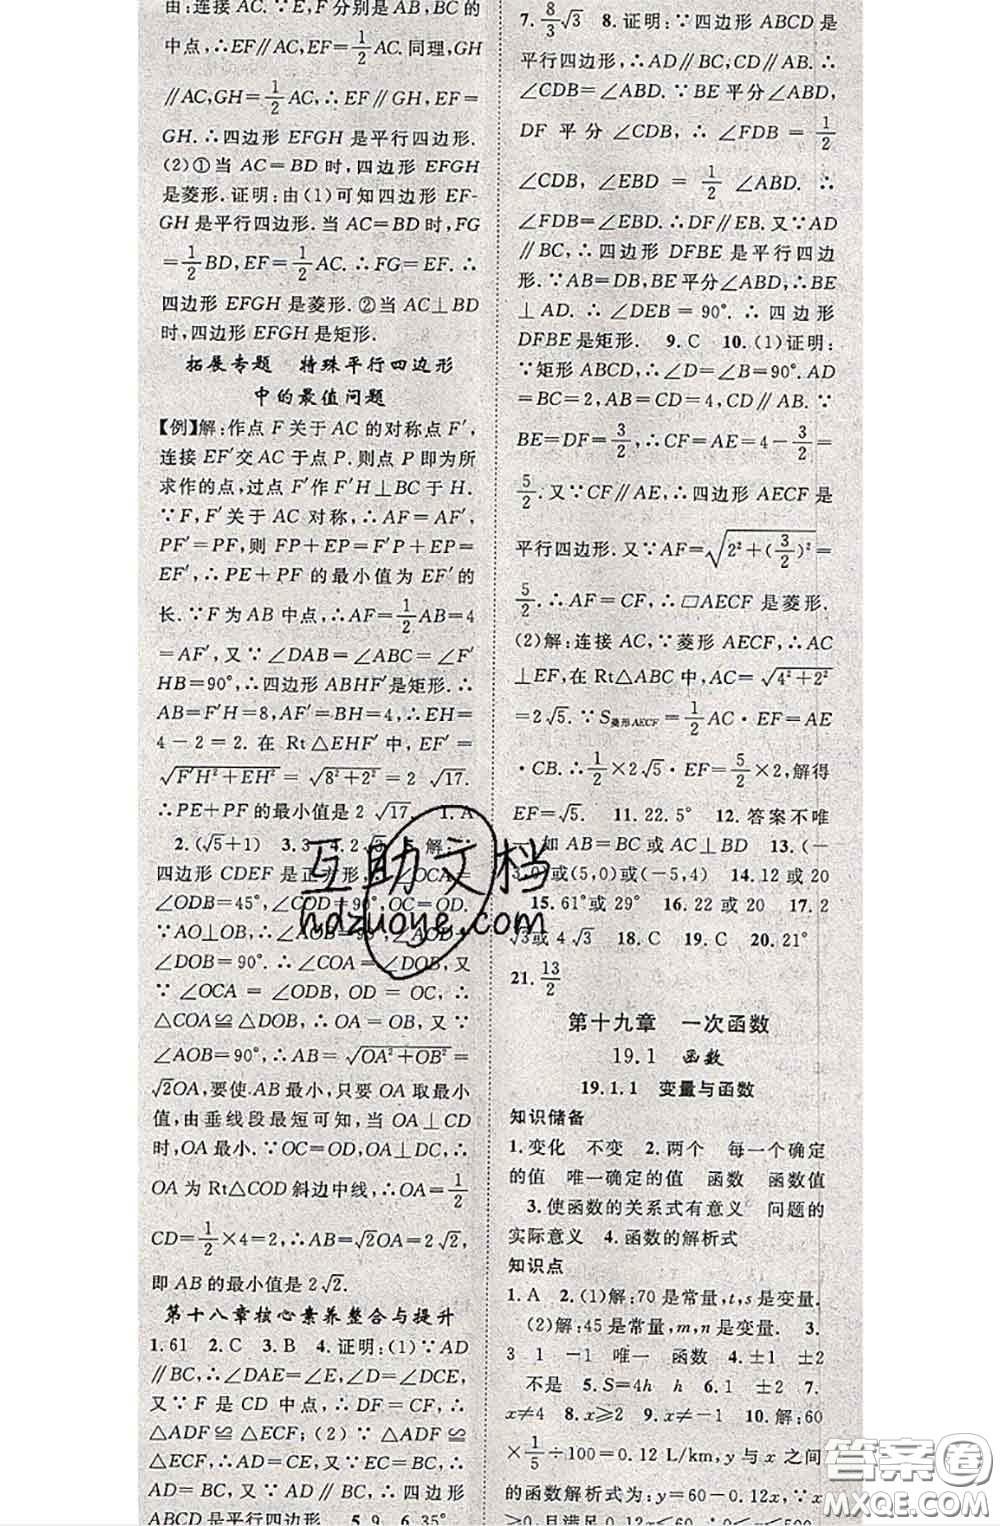 由:连接AC.∵E,F分别是AB,BC的
中点,∴EF∥AC,EF=1/2AC.同理,GH
∥AC,GH=1/2AC,∴EF∥GH,EF=
GH.∴四边形EFGH是平行四边形.
(2)①当AC=BD时,四边形EFGH
是菱形.证明:由(1)可知四边形EF-
GH是平行四边形.当AC=BD时,FG
=1/2BD,EF=1/2AC.∴FG=EF.∴
四边形EFGH是菱形.②当AC⊥BD
时,四边形EFGH是矩形.
拓展专题 特殊平行四边形
中的最值问题
【例】解:作点F关于AC的对称点F′,
连接EF′交AC于点P.则点P即为所
求作的点,过点F′作F′H⊥BC于H.
∵F,F′关于AC对称,∴AF=AF′,
PF′=PF,则FP+EP=F′P+EP=
EF′,∴PE+PF的最小值为EF′的
长.∵F为AB中点,∴AF=1/2AB=4
=AF′,又∵∠DAB=∠ABC=∠F′
HB=90°,∴四边形ABHF′是矩形.∴
AB=F′H=8,AF′=BH=4,∴EH=
4-2=2.在Rt△EHF′中,EF′=
√(F′H²+EH²)=√(8²+2²)=2√17.
∴PE+PF的最小值是2√17. 1.A
2.(√5+1) 3.3 4.2√3 5.解:∵
四边形CDEF是正方形,∴∠OCA=
∠ODB=45°,∠COD=90°,OC=OD.
∵AO⊥OB,∴∠AOB=90°,∴∠AOD+
∠DOB=90°,∴∠COA=∠DOB,又
∵∠OCA=∠ODB,OD=OC,∴
△COA≌△DOB,∴OA=OB,又∵
∠AOB=90°,∴AB=√(OA²+OB²)=
√2OA,要使AB最小,只要OA取最小
值,由垂线段最短可知,当OA⊥CD
时,OA最小.∵OC=OD,OA⊥DC,∴
OA为Rt△COD斜边中线,∴OA=1/2
CD=1/2×4=2,∴AB=√2OA=2√2,
即AB的最小值是2√2.
第十八章核心素养整合与提升
1.61 2.C 3.B 4.证明:(1)∵AD
∥BC,∴∠DAE=∠E,∠D=∠DCE,
又∵F是CD中点,∴DF=CF,∴
△ADF≌△ECF;(2)∵△ADF≌
△ECF,∴AD=EC,又∵CE=BC,∴
AD=BC,又∵AD∥BC,∴四边形
ABCD是平行四边形. 5.9 6.35°
7.8/3√3 8.证明:∵四边形ABCD是
平行四边形,∴AD∥BC,CD∥AB.∴
∠CDB=∠ABD.∵BE平分∠ABD,
DF平分∠CDB,∴∠FDB=1/2
∠CDB,∠EBD=1/2∠ABD.∴
∠FDB=∠EBD.∴DF∥EB.又∵AD
∥BC,∴四边形DFBE是平行四边
形.∵AB=DB,BE平分∠ABD,∴BE
⊥AD.∴∠DEB=90°.∴四边形
DFBE是矩形. 9.C 10.(1)证明:∵
矩形ABCD,∴∠D=∠B=90°.又∵
AB=4,AD=2,∴CD=4,CB=2.∵
BE=DF=3/2,∴CF=AE=4-3/2=
5/2.又∵CF∥AE,∴四边形AECF是
平行四边形.又∵AF=√(2²+(3/2)²)=
5/2.∴AF=CF,∴▱AECF是菱形.
(2)解:连接AC,∵菱形AECF,∴AC
⊥EF,在Rt△ABC中,AC=√(4²+2²)
=2√5.∵S菱形AECF=1/2AC·EF=AE
·CB.∴1/2×2√5·EF=5/2×2,解得
EF=√5. 11.22.5° 12.答案不唯
一,如AB=BC或AC⊥BD 13.(-
3,0)或(5,0)或(-5,4) 14.12或20
15.61°或29° 16.22或20 17.2
√3或4√3 18.C 19.C 20.21°
21.13/2
第十九章 一次函数
19.1 函数
19.1.1 变量与函数
知识储备
1.变化 不变 2.两个 每一个确定
的值 唯一确定的值 函数 函数值
3.使函数的关系式有意义 问题的
实际意义 4.函数的解析式
知识点
1.A 2.(1)解:70是常量,t,s是变量.
(2)解:45是常量,m,n是变量. 3.
3 1 -1 唯一 函数 4.±1 ±2
不是 5.S=4h h 6.1 ±2 7.
x≠4 8.x≥2 9.x≠-1 10.解:60
×1/5÷100=0.12 L/km,y与x之间
的函数解析式为:y=60-0.12x,
且满足0≤0.12x≤
互助文档
hdzuoye.com
答案圈
MXQE.COM